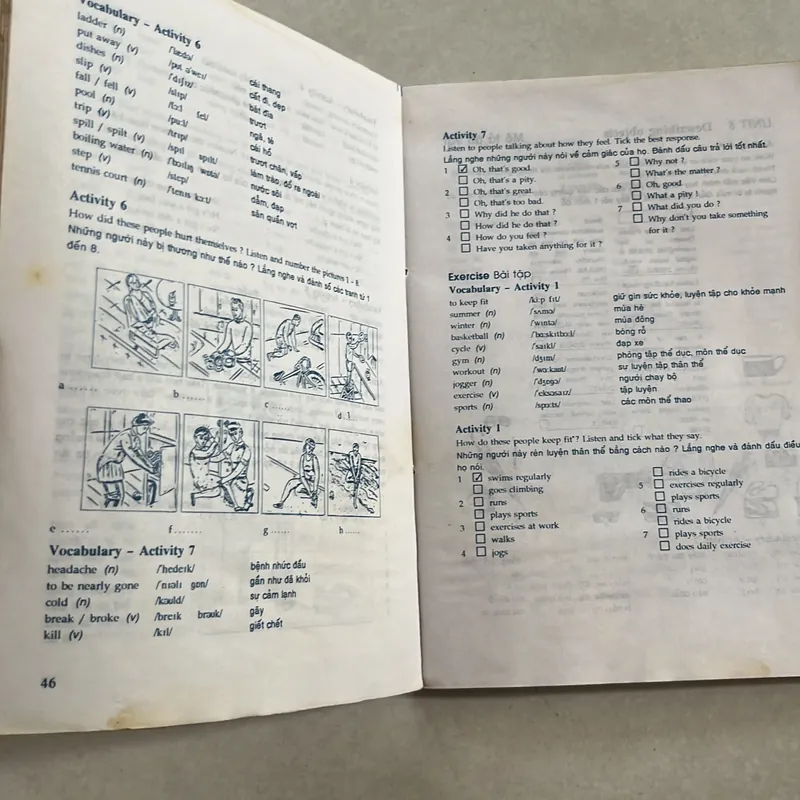 Vocabulary – Activity 6
ladder (n) /'lædə/ cái thang
put away (v) /put ə'weɪ/ cất đi, dẹp
dishes (n) /'dɪʃɪz/ bát đĩa
slip (v) /slɪp/ trượt
fall / fell (v) /fɔ:l fel/ ngã, té
pool (n) /pu:l/ cái hồ
trip (v) /trɪp/ trượt chân, vấp
spill / spilt (v) /spɪl spɪlt/ làm trào, đổ ra ngoài
boiling water (n) /'bɔɪlɪŋ wɔtə/ nước sôi
step (v) /step/ dẫm, đạp
tennis court (n) /'tenɪs kɔ:t/ sân quần vợt
Activity 6
How did these people hurt themselves ? Listen and number the pictures 1 – 8.
Những người này bị thương như thế nào ? Lắng nghe và đánh số các tranh từ 1
đến 8.
a ......
b ......
c ......
d .1
e ......
f ......
g ......
h ......
Vocabulary – Activity 7
headache (n) /'hedeɪk/ bệnh nhức đầu
to be nearly gone /'nɪəlɪ gɒn/ gần như đã khỏi
cold (n) /kəʊld/ sự cảm lạnh
break / broke (v) /breɪk brəʊk/ gãy
kill (v) /kɪl/ giết chết
46
Activity 7
Listen to people talking about how they feel. Tick the best response.
Lắng nghe những người này nói về cảm giác của họ. Đánh dấu câu trả lời tốt nhất.
1 ☑ Oh, that's good.
☐ Oh, that's a pity.
2 ☐ Oh, that's great.
☐ Oh, that's too bad.
3 ☐ Why did he do that ?
☐ How did he do that ?
4 ☐ How do you feel ?
☐ Have you taken anything for it ?
5 ☐ Why not ?
☐ What's the matter ?
6 ☐ Oh, good.
☐ What a pity !
7 ☐ What did you do ?
☐ Why don't you take something
for it ?
Exercise Bài tập
Vocabulary – Activity 1
to keep fit /ki:p fɪt/ giữ gìn sức khỏe, luyện tập cho khỏe mạnh
summer (n) /'sʌmə/ mùa hè
winter (n) /'wɪntə/ mùa đông
basketball (n) /'bɑ:skɪtbɔ:l/ bóng rổ
cycle (v) /'saɪkl/ đạp xe
gym (n) /dʒɪm/ phòng tập thể dục, môn thể dục
workout (n) /'wɜ:kaʊt/ sự luyện tập thân thể
jogger (n) /'dʒɒgə/ người chạy bộ
exercise (v) /'eksəsaɪz/ tập luyện
sports (n) /spɔ:ts/ các môn thể thao
Activity 1
How do these people keep fit'? Listen and tick what they say.
Những người này rèn luyện thân thể bằng cách nào ? Lắng nghe và đánh dấu điều
họ nói.
1 ☑ swims regularly
☐ goes climbing
2 ☐ runs
☐ plays sports
3 ☐ exercises at work
☐ walks
4 ☐ jogs
☐ rides a bicycle
5 ☐ exercises regularly
☐ plays sports
6 ☐ runs
☐ rides a bicycle
7 ☐ plays sports
☐ does daily exercise